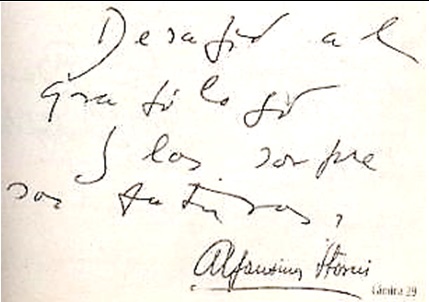 Desafío al
grafólogo
y las sorpre
sas futuras,
Alfonsina Storni
Lámina 29